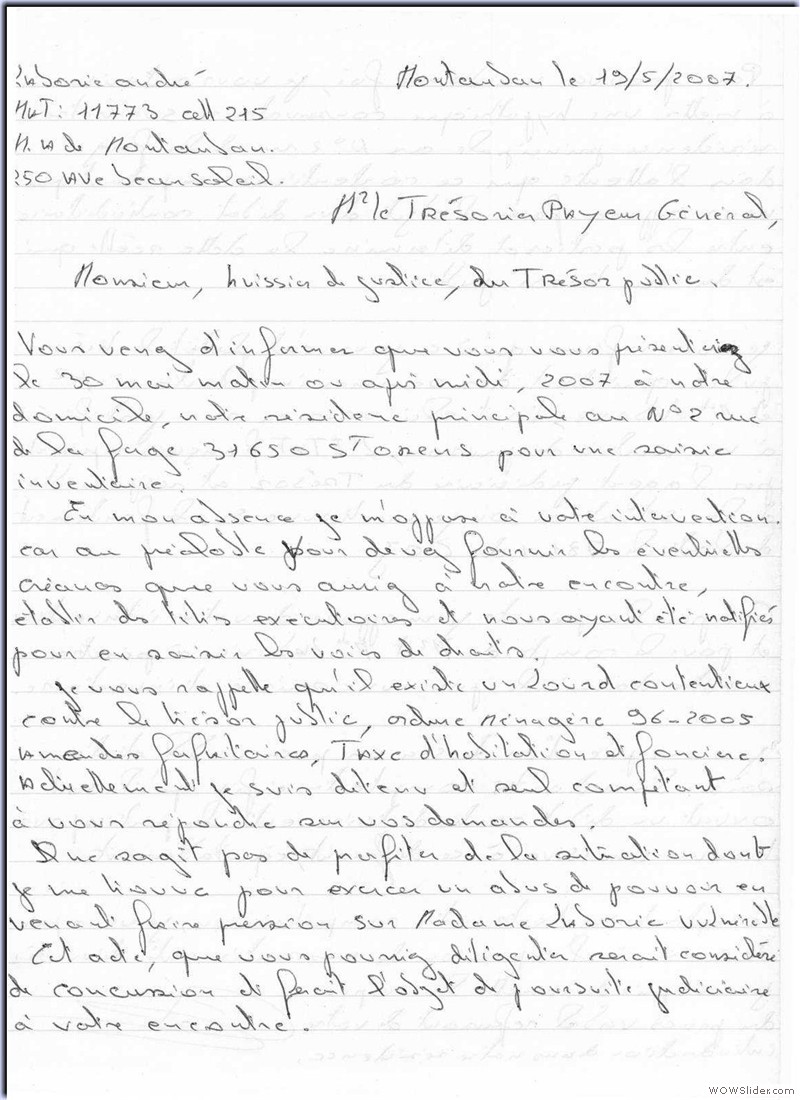 Laborie andré Montauban le 19/5/2007.
MAT: 11773 cell 215
M. A de Montauban.
250 AVe beau soleil.
Mr le TRÉSORier PAYeur Général,
Monsieur, huissier de justice, du TRÉSOR public.
Vous venez d'informer que vous vous présenteriez
le 30 mai matin ou après midi, 2007 à notre
domicile, notre résidence principale au N° 2 rue
de la forge 31650 ST ORENS pour une saisie
inventaire.
En mon absence je m'oppose à votre intervention.
car au préalable vous devez fournir les éventuelles
créances que vous auriez à notre encontre,
établir des titres exécutoires et nous ayant été notifiés
pour en saisir les voies de droits.
Je vous rappelle qu'il existe un lourd contentieux
contre le trésor public, ordure Ménagère 96-2005
Amendes forfaitaires, TAXE d'habitation et foncière.
Actuellement je suis détenu et seul compétant
à vous répondre sur vos demandes.
Il ne sagit pas de profiter de la situation dont
je me trouve pour exercer un abus de pouvoir en
venant faire pression sur Madame Laborie vulnérable
Cet acte, que vous pourriez diligenter serait considéré
de concussion et ferait l'objet de poursuite judiciaire
à votre encontre.
WOWSlider.com